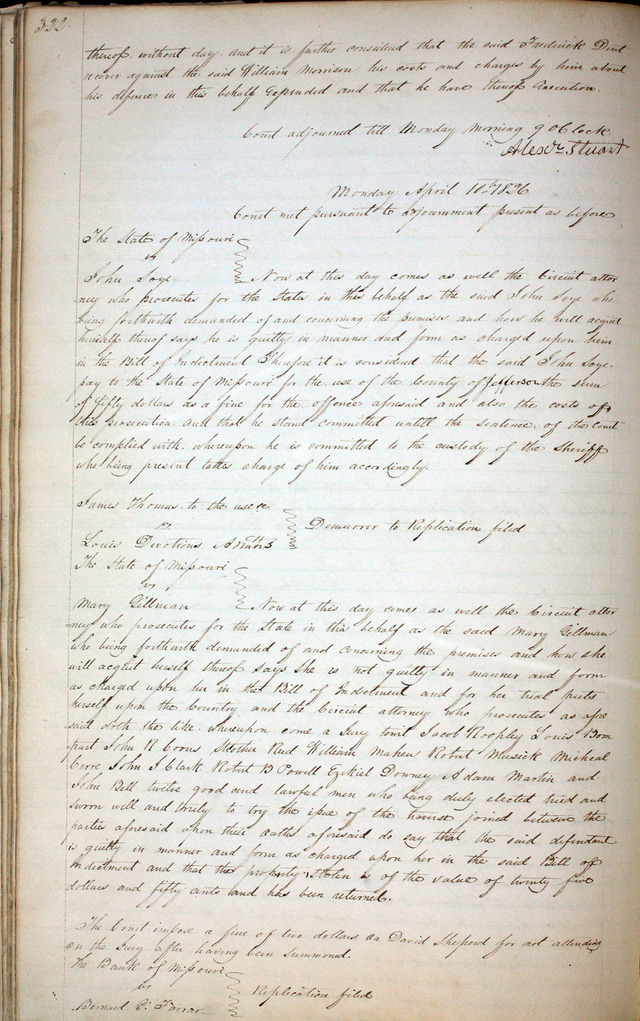 322
thereof without day and it is further considered that the said Frederick Dent
recover against the said William Morrison his costs and charges by him about
his defence in this behalf Expended and that he have thereof Execution.
Court adjourned till Monday morning 9 oClock
Alexr. Stuart
Monday April 10th 1826
Court met pursuant to adjournment present as before
The State of Missouri
vs
John Soye Now at this day comes as well the Circuit attor
ney who prosecutes for the State in this behalf as the said John Soye who
being forthwith demanded of and concerning the premises and how he will acquit
himself thereof says he is guilty in manner and form as charged upon him
in the Bill of Indictment Therefore it is considered that the said John Soye
pay to the State of Missouri for the use of the County of Jefferson the sum
of fifty dollars as a fine for the offence aforesaid and also the costs of
this prosecution and that he stand committed untill the sentence of the Court
be complied with, whereupon he is committed to the custody of the Sheriff
who being present takes charge of him accordingly.
James Thomas to the use &c
vs Demurrer to Replication filed
Louis
The State of Missouri
vs
Mary Gillman Now at this day comes as well the Circuit attor
ney who prosecutes for the State in this behalf as the said Mary Gillman
who being forthwith demanded of and concerning the premises and how she
will acquit herself thereof says she is not guilty in manner and form
as charged upon her in the Bill of Indictment and for her trial puts
herself upon the Country and the Circuit attorney who prosecutes as afore
said doth the like whereupon come a Jury towit Jacob Louis Bom
part John R William Robert Musick Micheal
Cerre John J Clark Robert B Powell Ezekiel Downey Adam Martin and
John Bell twelve good and lawful men who being duly elected tried and
sworn well and truly to try the issue of the joined between the
parties aforesaid upon their oaths aforesaid do say that the said defendant
is guilty in manner and form as charged upon her in the said Bill of
Indictment and that the property stolen is of the value of twenty five
dollars and fifty cents and has been returned.
The Court impose a fine of two dollars on David Sheperd for not attending
on the Jury after having been summoned.
The Bank of Missouri
vs Replication filed
Bernard G. Farrar